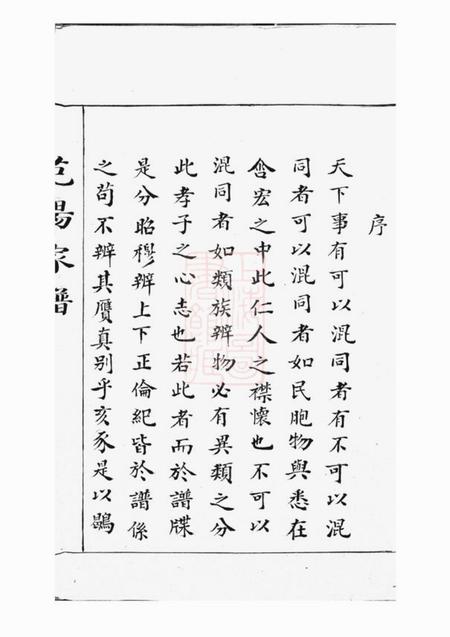 序
天下事有可以混同者有不可以混
同者可以混同者如民胞物與悉在
含宏之中此仁人之襟懷也不可以
混同者如類族辨物必有異類之分
此孝子之心志也若此者而於譜牒
是分昭穆辨上下正倫紀皆於譜係
之苟不辨其贗真别乎亥豕是以鷃
范陽家譜